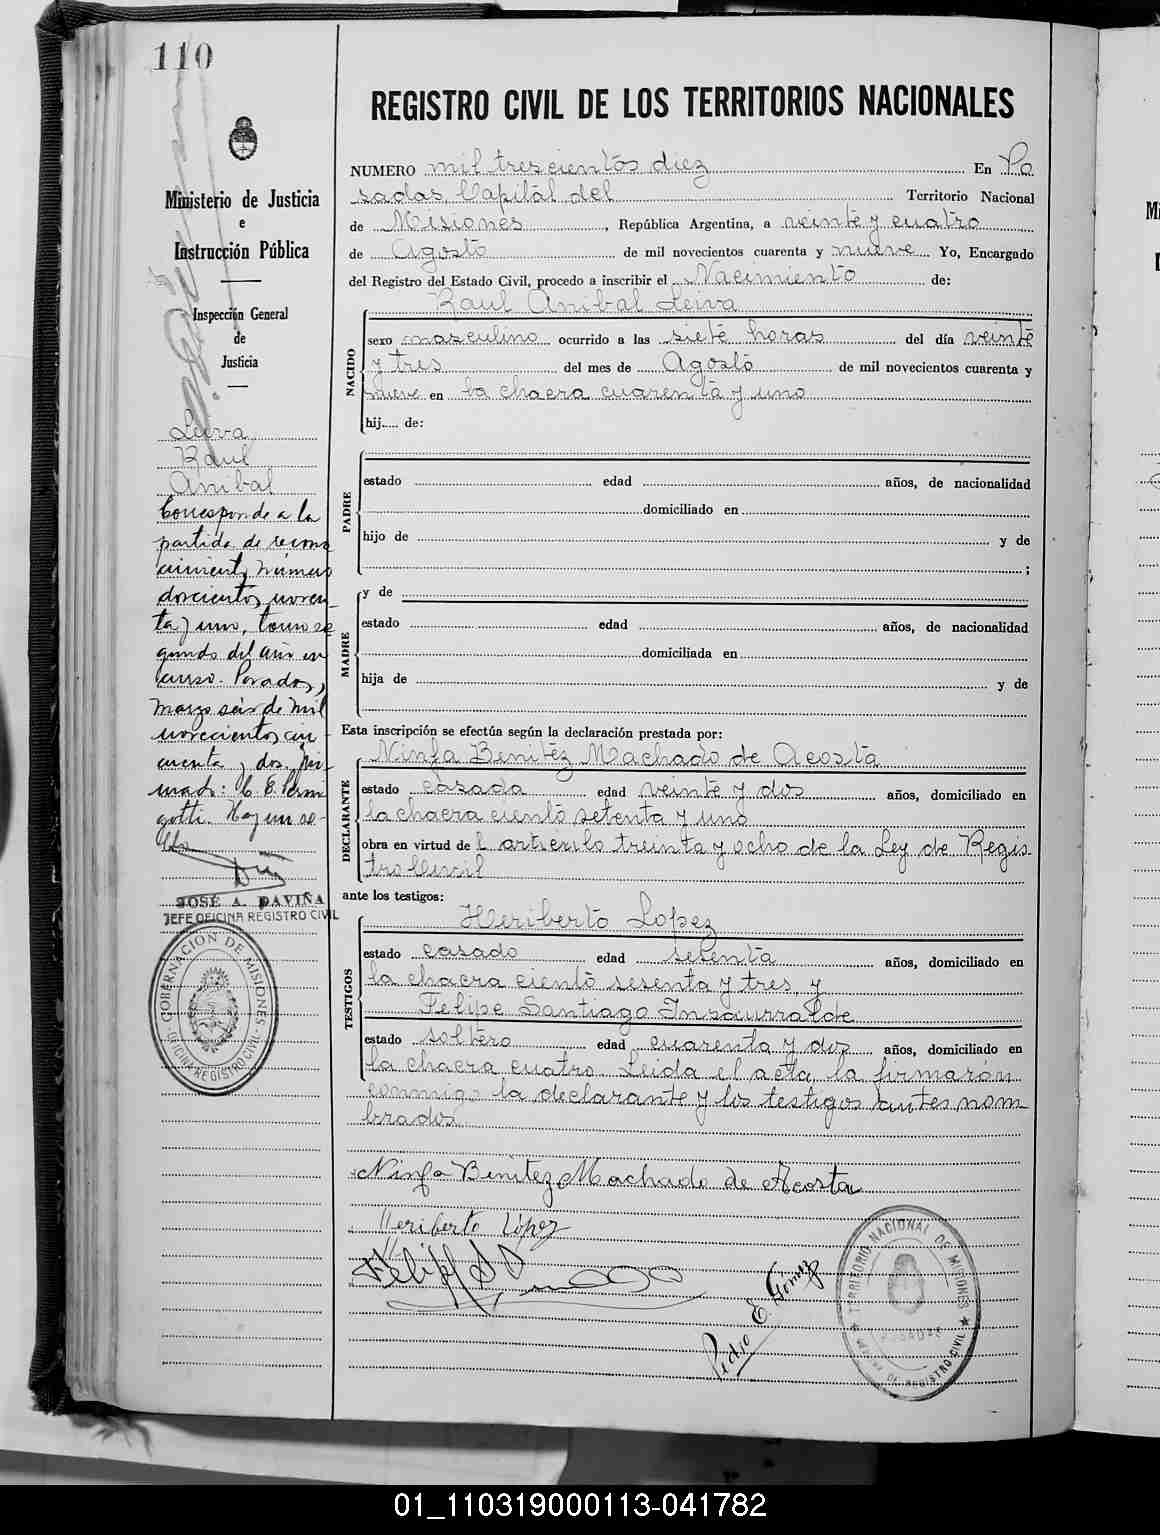 110
Ministerio de Justicia
e
Instrucción Pública
Inspección General
de
Justicia
Leiva
Raul
Anibal
Corresponde a la
partida de recono
cimiento número
doscientos noven_
ta y uno, tomo se
gundo del año en
curso. Posadas,
marzo seis de mil
novecientos cin_
cuenta y dos. Fir
mado: C. E.
Hay un se_
llo
JOSÉ A. DAVIÑA
JEFE OFICINA REGISTRO CIVIL
GOBERNACION DE MISIONES
OFICINA REGISTRO CIVIL
REGISTRO CIVIL DE LOS TERRITORIOS NACIONALES
NUMERO mil trescientos diez En Po
sadas Capital del Territorio Nacional
de Misiones, República Argentina, a veinte y cuatro
de Agosto de mil novecientos cuarenta y nueve Yo, Encargado
del Registro del Estado Civil, procedo a inscribir el Nacimiento de:
Raul Anibal Leiva
NACIDO
sexo masculino ocurrido a las siete horas del día veinte
y tres del mes de Agosto de mil novecientos cuarenta y
nueve en la chacra cuarenta y uno
hij.... de:
PADRE
estado edad años, de nacionalidad
domiciliado en
hijo de y de
;
y de
MADRE
estado edad años, de nacionalidad
domiciliada en
hija de y de
Esta inscripción se efectúa según la declaración prestada por:
Ninfa Benitez Machado de Acosta
DECLARANTE
estado casada edad veinte y dos años, domiciliado en
la chacra ciento setenta y uno
obra en virtud de l artículo treinta y ocho de la Ley de Regis
tro Civil
ante los testigos:
Heriberto Lopez
TESTIGOS
estado casado edad setenta años, domiciliado en
la chacra ciento sesenta y tres, y
Felipe Santiago Insaurralde
estado soltero edad cuarenta y dos años, domiciliado en
la chacra cuatro. Leida el acta la firmaron
conmigo la declarante y los testigos antes nom
brados.
Ninfa Benitez Machado de Acosta
Heriberto López
Felipe S
Pedro E. Gómez
TERRITORIO NACIONAL DE MISIONES
POSADAS
OFICINA DE REGISTRO CIVIL
01_110319000113-041782